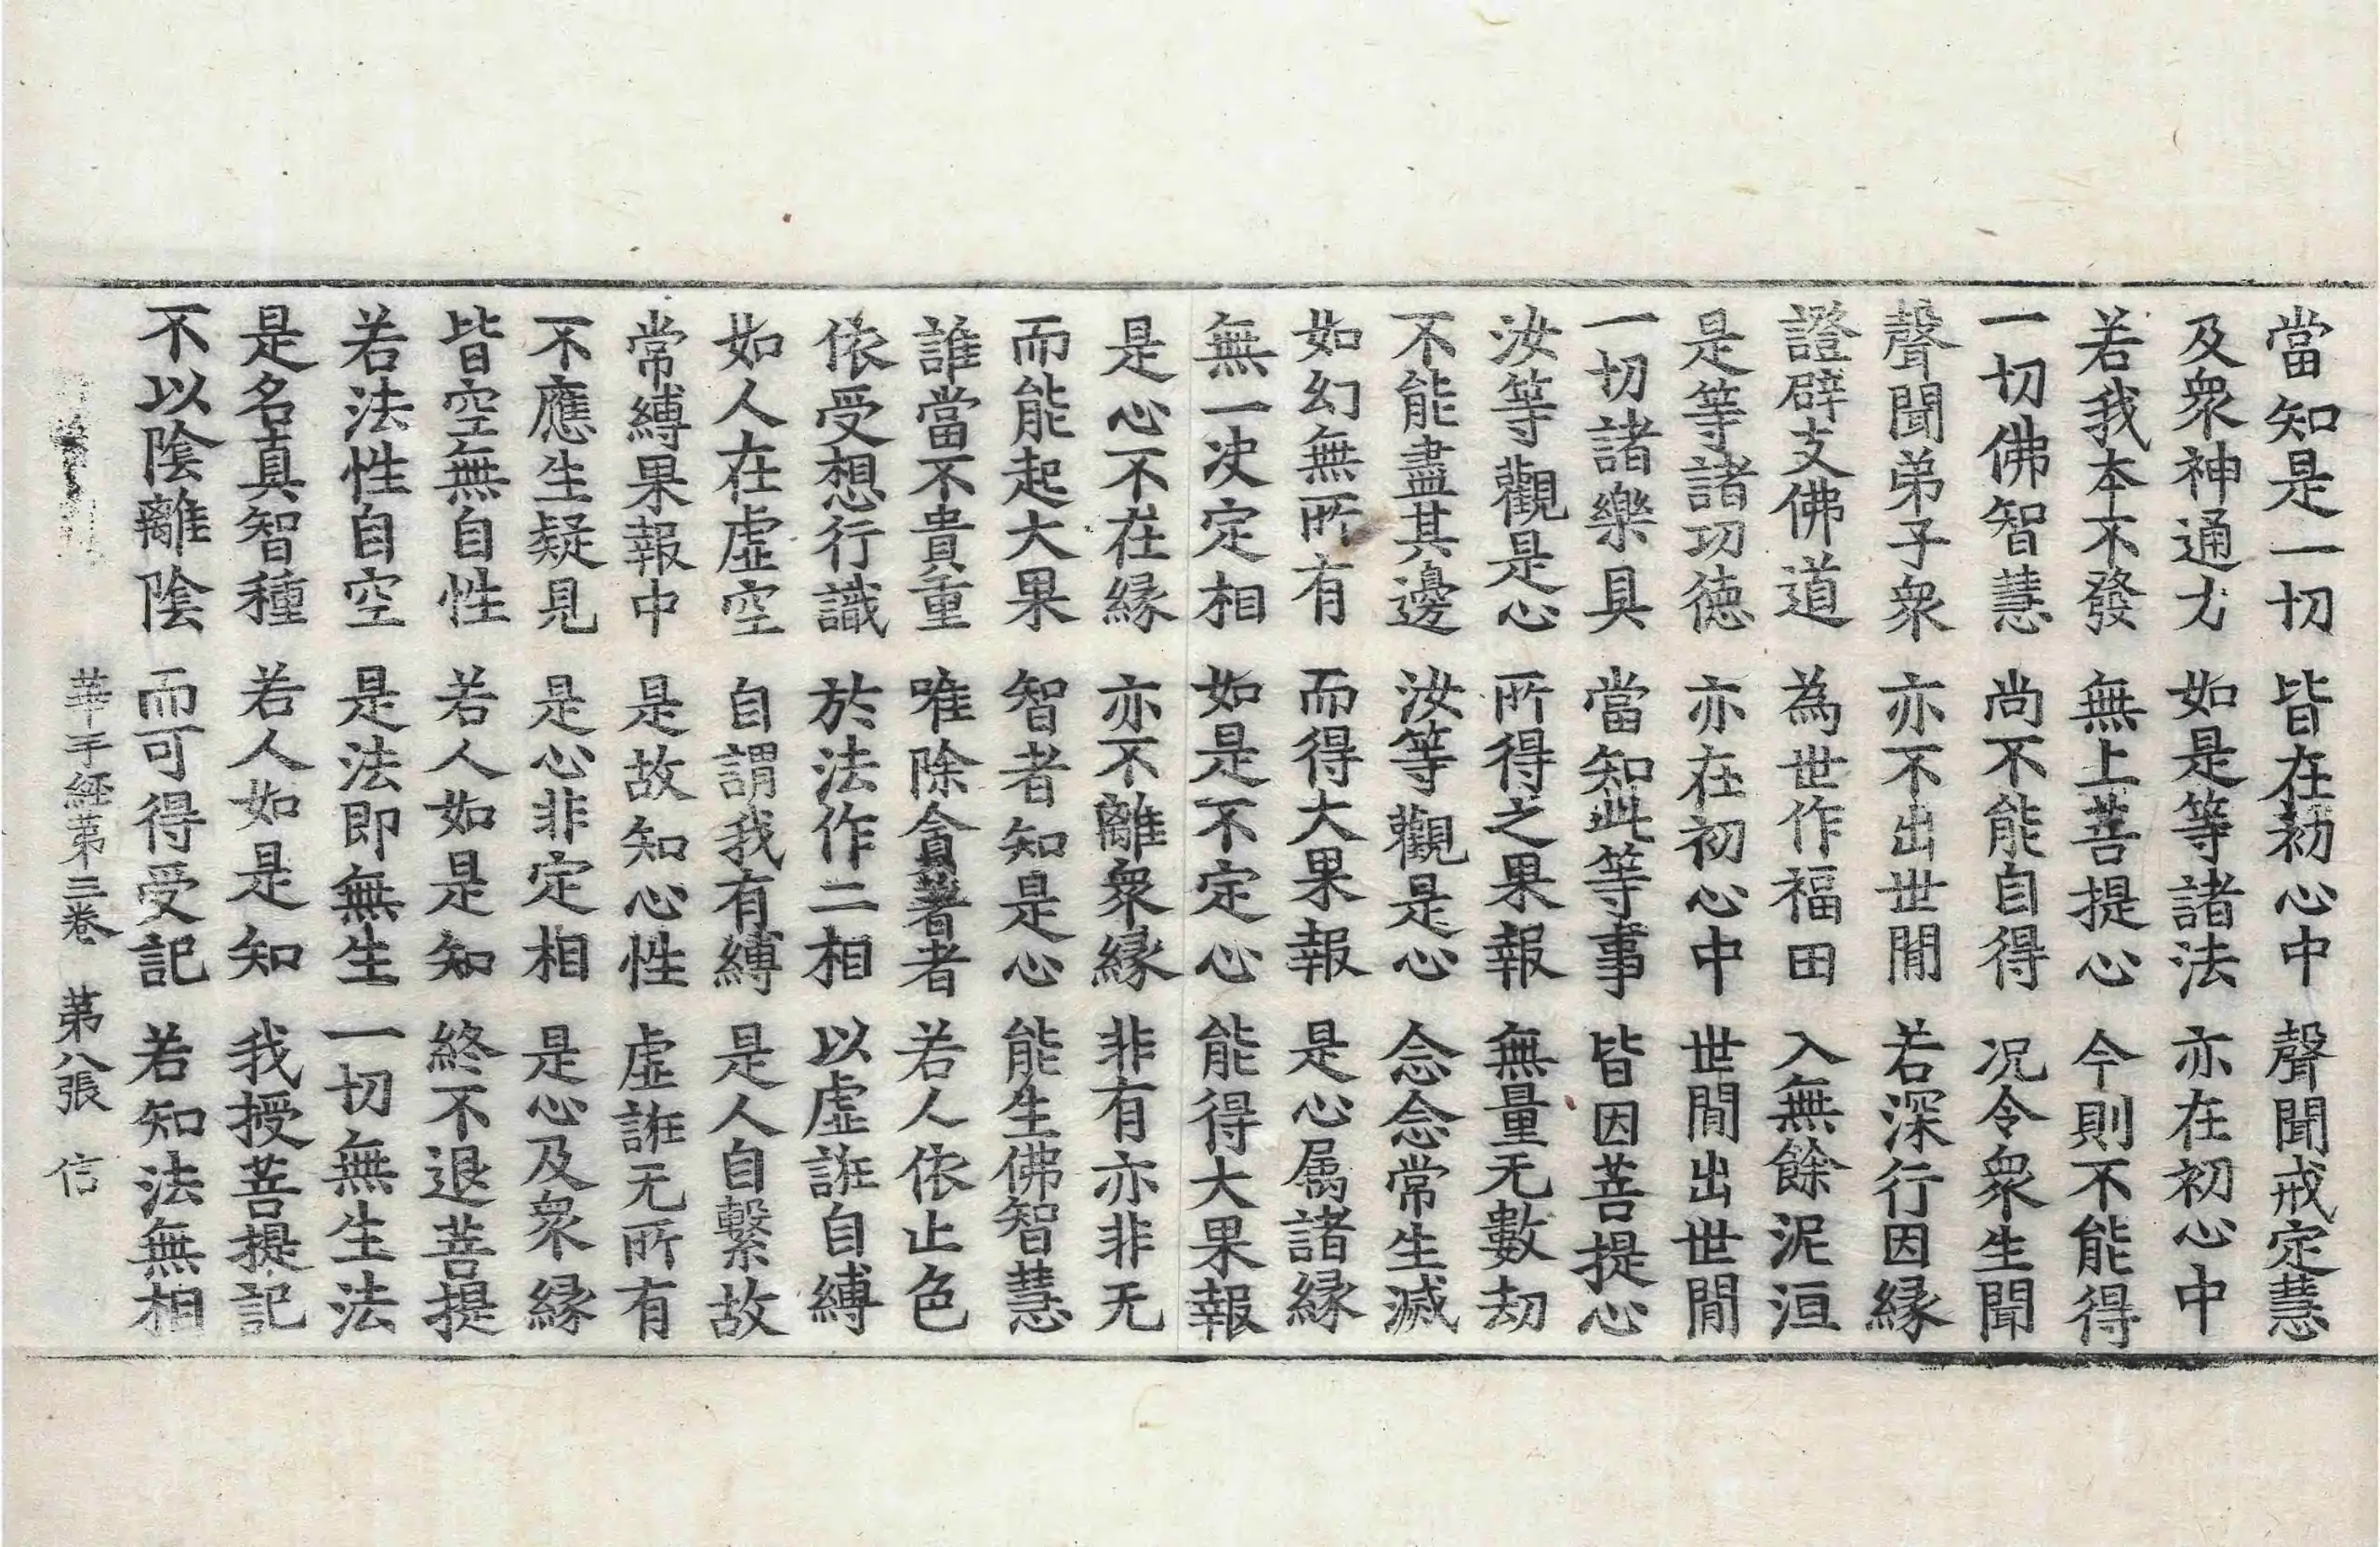 當知是一切　皆在初心中　聲聞戒定慧
及衆神通力　如是等諸法　亦在初心中
若我本不發　無上菩提心　今則不能得
一切佛智慧　尚不能自得　况令衆生聞
聲聞弟子衆　亦不出世閒　若深行因縁
證辟支佛道　為世作福田　入無餘泥洹
是等諸功徳　亦在初心中　世閒出世閒
一切諸樂具　當知此等事　皆因菩提心
汝等觀是心　所得之果報　無量无數劫
不能盡其邊　汝等觀是心　念念常生滅
如幻無所有　而得大果報　是心属諸縁
無一决定相　如是不定心　能得大果報
是心不在縁　亦不離衆縁　非有亦非无
而能起大果　智者知是心　能生佛智慧
誰當不貴重　唯除貪著者　若人依止色
依受想行識　於法作二相　以虛誑自縛
如人在虛空　自謂我有縛　是人自繫故
常縛果報中　是故知心性　虛誑无所有
不應生疑見　是心非定相　是心及衆縁
皆空無自性　若人如是知　終不退菩提
若法性自空　是法即無生　一切無生法
是名真智種　若人如是知　我授菩提記
不以陰離陰　而可得受記　若知法無相
華手經第三卷　第八張　信